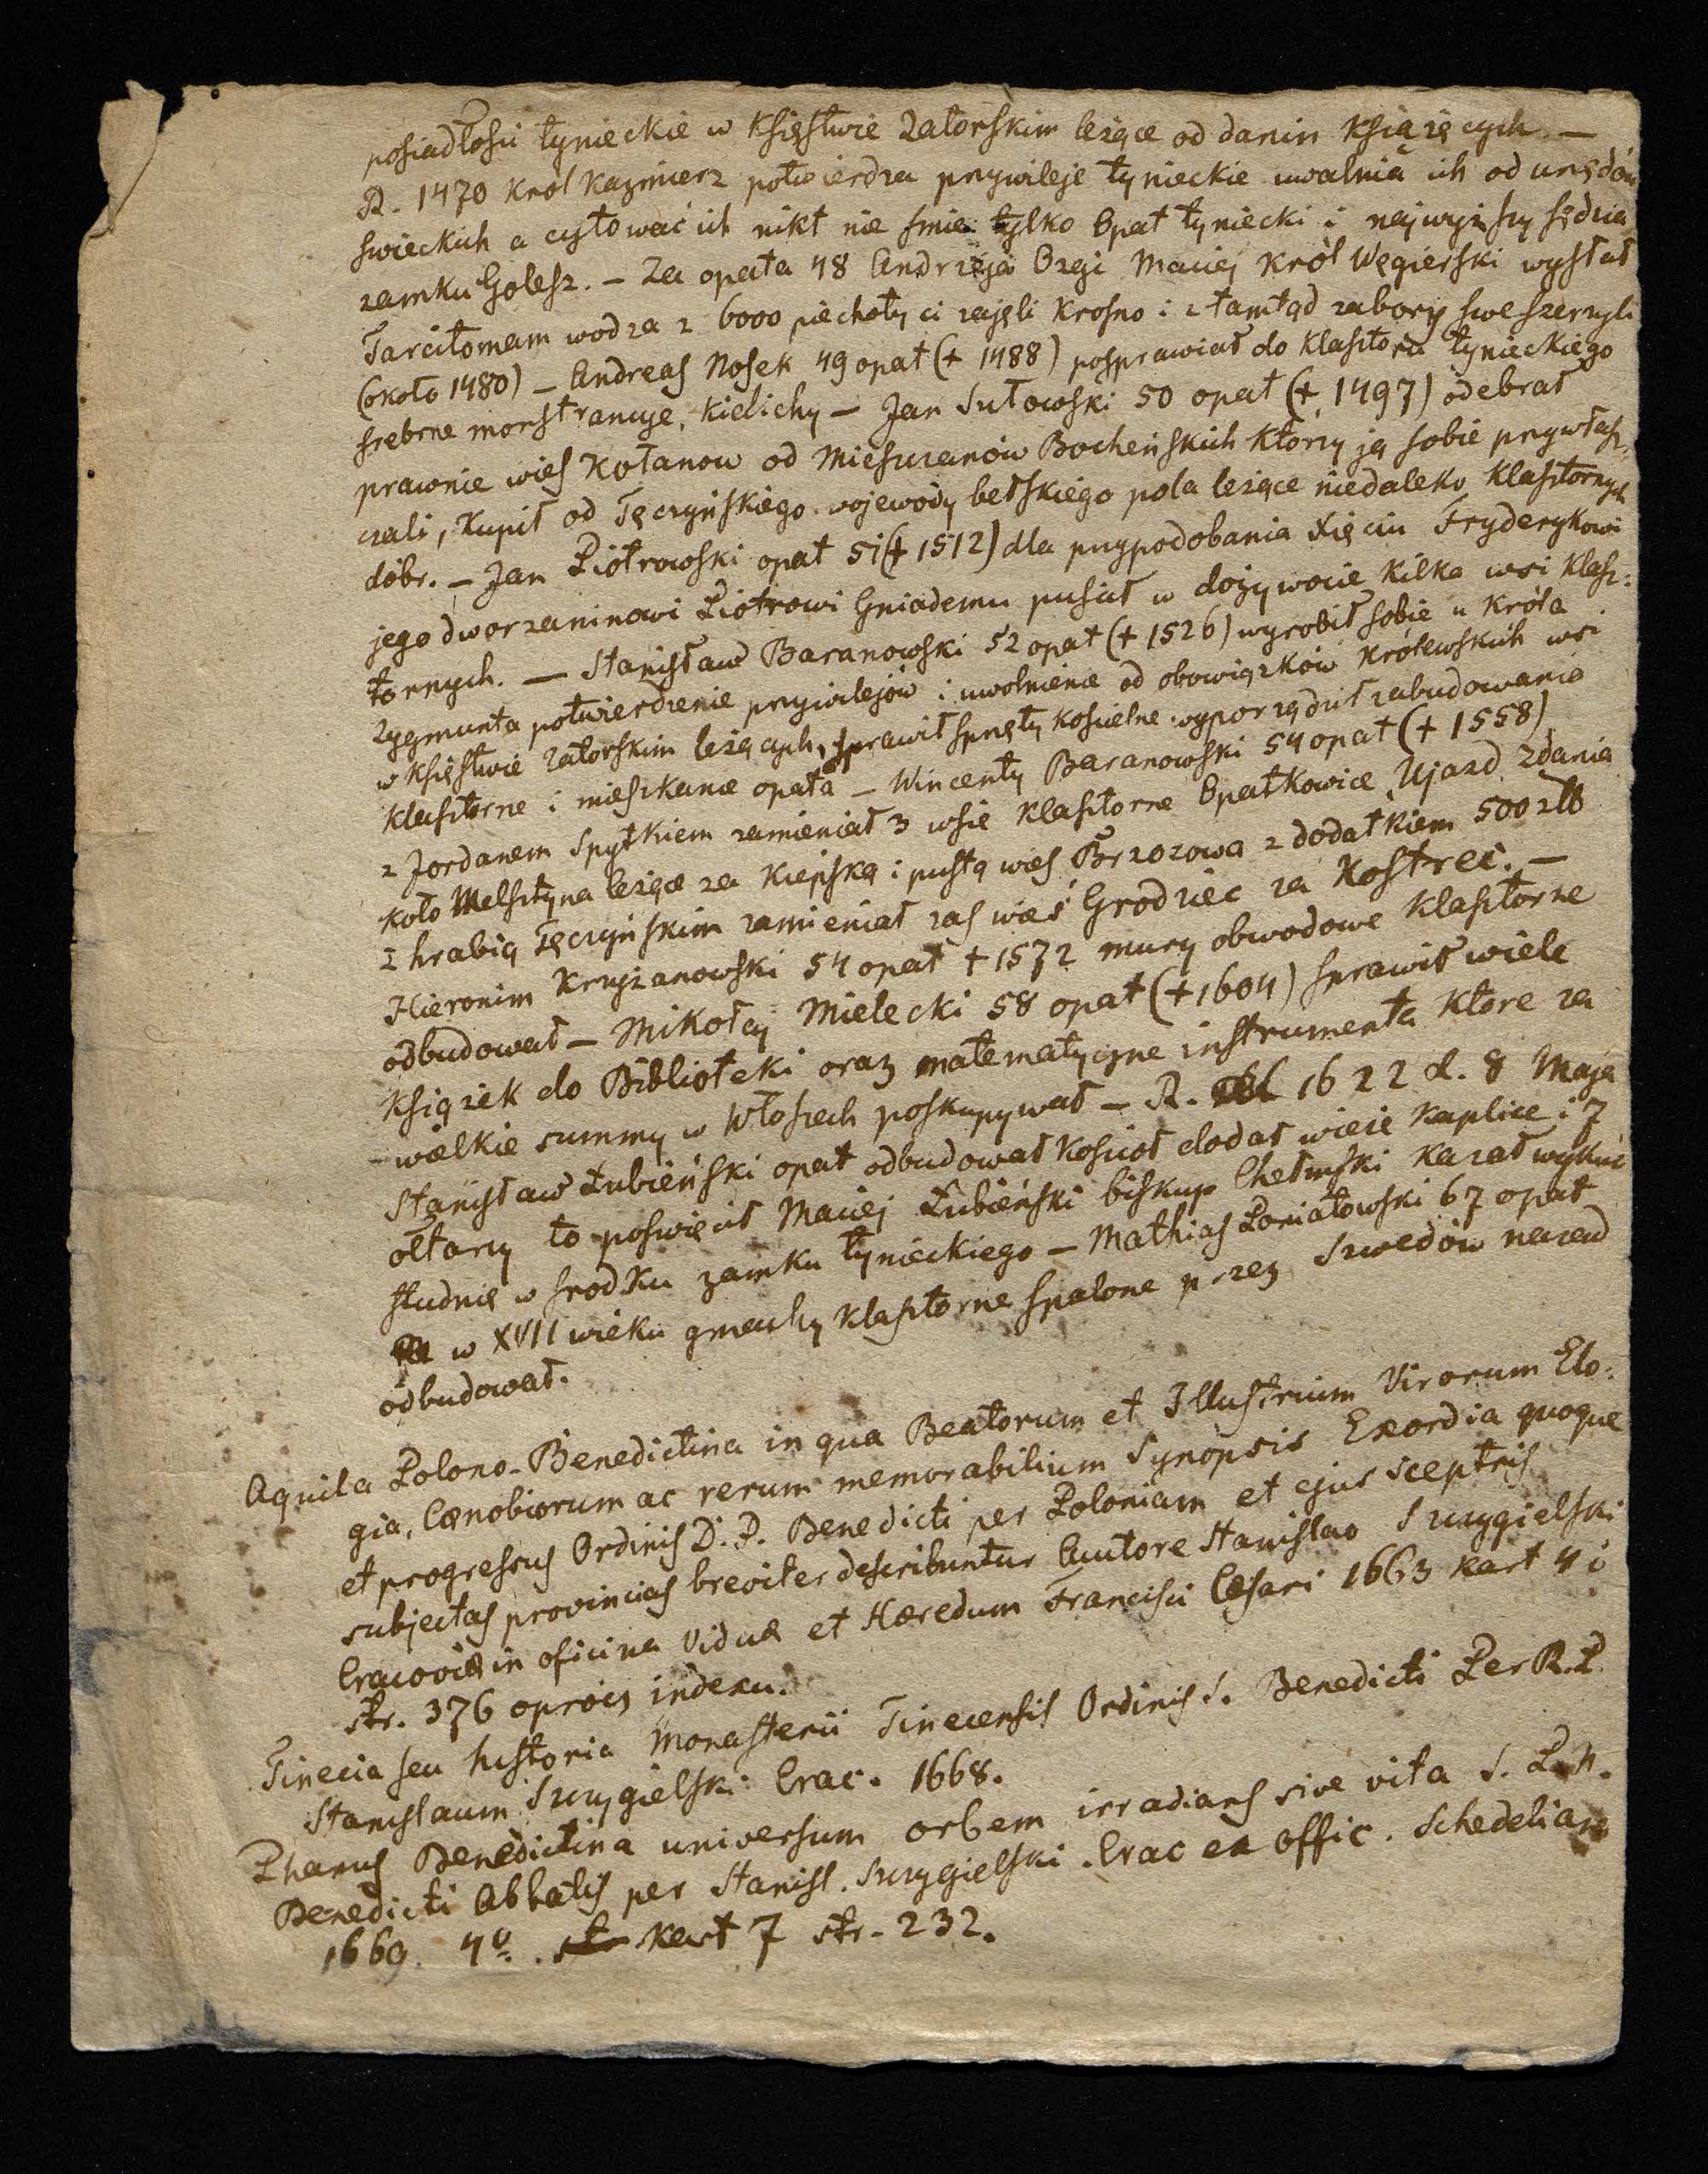 posiadłości tynieckie w Księstwie Zatorskim leżące od danin Książęcych. —
R. 1470 Król Kazmierz potwierdza przywileje tynieckie uwalnia ich od urzędów
swieckich a cytować ich nikt nie smie tylko Opat tyniecki i najwyższy sędzia
zamku Golesz. — Za opata 48 Andrzeja Ozgi Maciej Król Węgierski wysłał
Tarcitomam wodza z 6000 piechoty ci zajęli Krosno i z tamtąd zabory swe szerzyli
(około 1480) — Andreas Nosek 49 opat (+ 1488) posprawiał do Klasztoru tynieckiego
srebrne monstrancye, Kielichy — Jan Sułowski 50 opat (+ 1497) odebrał
prawnie wies Kołanow od Mieszczanów Bocheńskich Którzy ją sobie przywłasz:
czali, Kupił od Tęczyńskiego wojewody bełskiego pola leżące niedaleko Klasztornych
dóbr. — Jan Piotrowski opat 51 (+ 1512) dla przypodobania Xięciu Fryderykowi
jego dworzaninowi Piotrowi Gniademu puścił w dożywocie Kilka wsi Klasz:
tornych. — Stanisław Baranowski 52 opat (+ 1526) wyrobił sobie u Króla
Zygmunta potwierdzenie przywilejów i uwolnienie od obowiązków Królewskich wsi
w Księstwie Zatorskim leżących, sprawił sprzęty Kościelne wyporządził zabudowania
Klasztorne i mieszkanie opata — Wincenty Baranowski 54 opat (+ 1558)
z Jordanem Spytkiem zamieniał 3 wsie Klasztorne Opatkowice, Ujazd, Zdania
Koło Melsztyna leżące za Kiepską i pustą wies Brzozowa z dodatkiem 500 zł
z hrabią Tęczyńskim zamieniał zas wieś Grodziec za Kostrec. —
Hieronim Krzyżanowski 54 opat + 1572 mury obwodowe Klasztorne
odbudował — Mikołaj Mielecki 58 opat (+ 1604) sprawił wiele
Książek do Biblioteki oraz matematyczne instrumenta Które za
wielkie summy w Włoszech poskupywał — R. 1622 d. 8 Maja
Stanisław Łubieński opat odbudował Kościoł dodał wieże Kaplice i 7
ołtarzy to poświęcił Maciej Łubieński biskup Chełmski Kazał wykuć
studnię w srodku zamku tynieckiego — Mathias Poniatowski 67 opat
w XVII wieku gmachy Klasztorne spalone przez Szwedów nazad
odbudował.
Aquila Polono-Benedictina in qua Beatorum et Illustrium Virorum Elo:
gia, Cœnobiorum ac rerum memorabilium Synopsis Exordia quoque
et progressus Ordinis D. P. Benedicti per Poloniam et ejus sceptris
subjectas provincias breviter describuntur Auutore Stanislao Szczygielski
Cracoviæ in oficina Viduæ et Hæredum Francisci Cesari 1663 kart 4 i
str. 376 oprócz indexu.
Tinecia seu historia Monasterii Tinecensis Ordinis S. Benedicti Per R.P.
Stanislaum Szczygielski Crac. 1668.
Pharus Benedictina universum orbem irradians sive vita S. P. N.
Benedicti Abbatis per Stanisl. Szczygielski. Crac ex offic. Schedeliana
1669. 4º. str kart 7 str. 232.